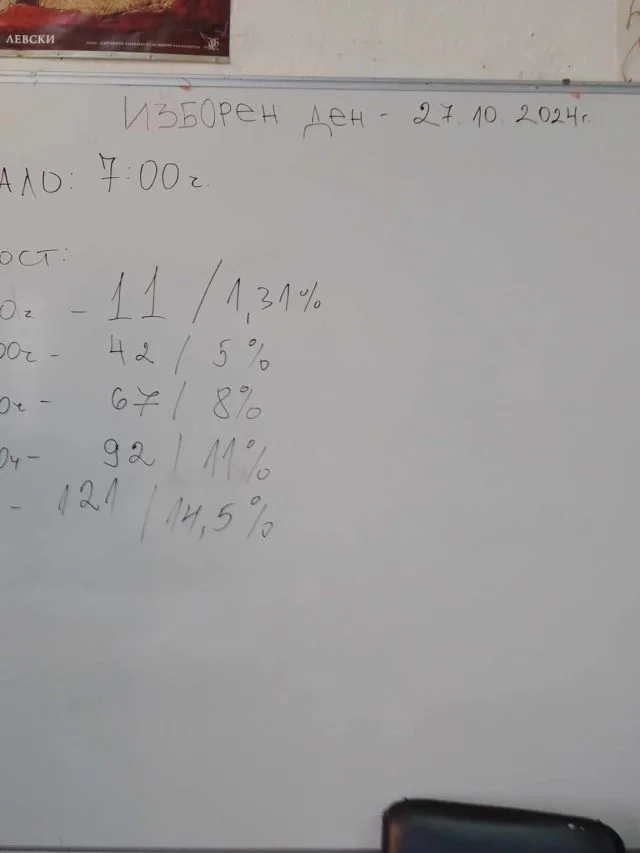 ЛЕВСКИ
ИЗБОРЕН ДЕН - 27.10.2024г.
АЛО: 7:00ч.
ОСТ:
0ч - 11 / 1,31%
00ч - 42 / 5%
0ч - 67 / 8%
0ч - 92 / 11%
- 121 / 14,5%